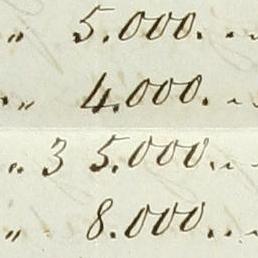 „ 5.000. . .
„ 4.000. . .
„ 3 5.000. . .
„ 8.000. . .